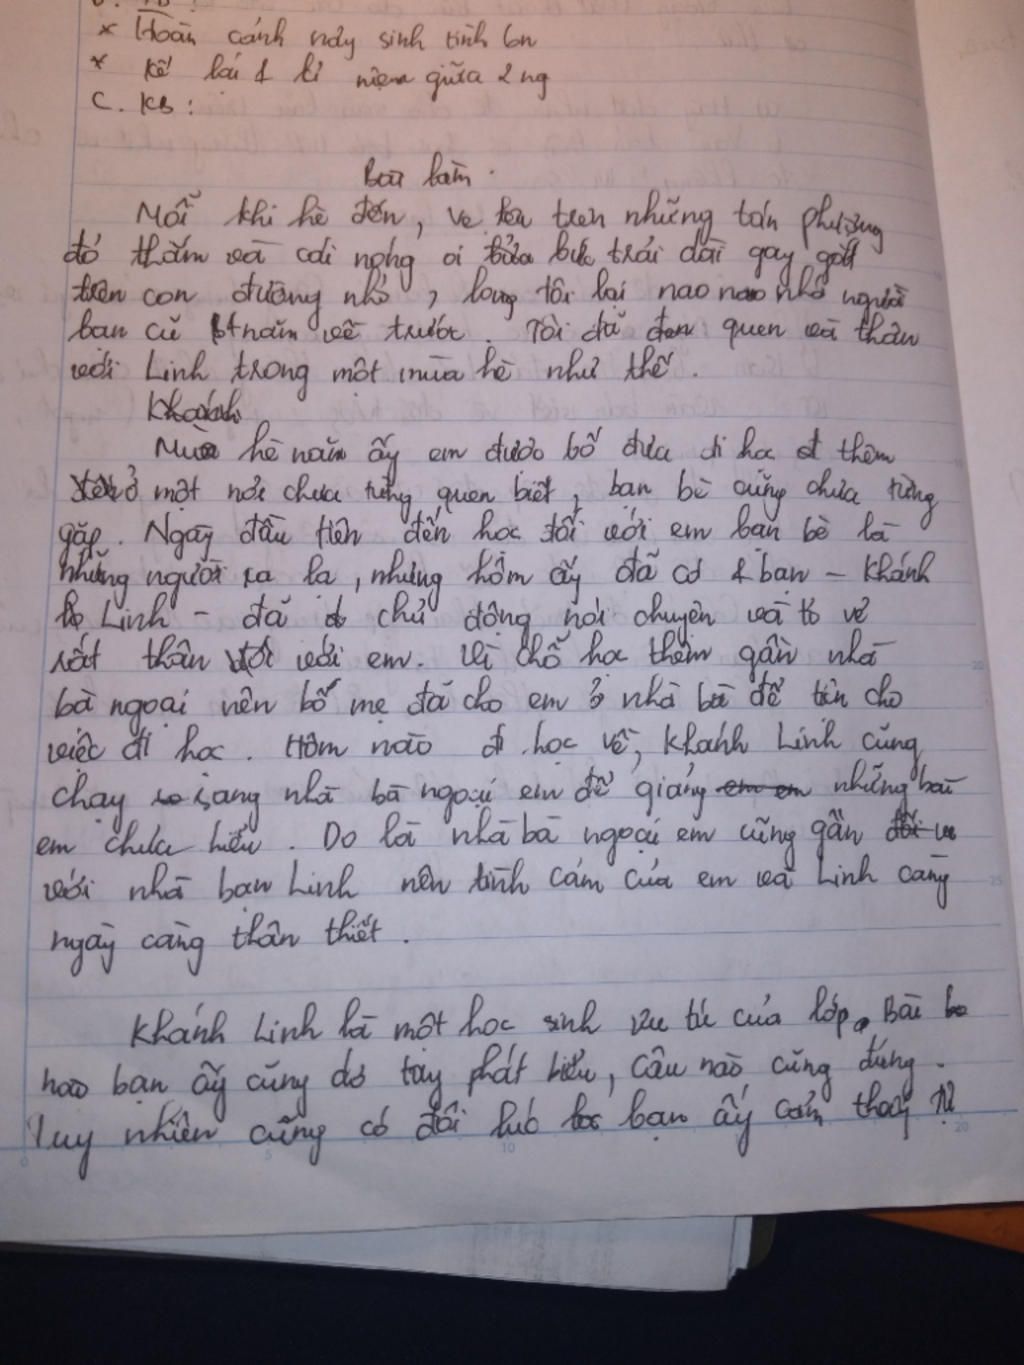 * Hoàn cảnh nảy sinh tình bn
* kể lại 1 kỉ niệm giữa 2 ng
C. KB:
Bài làm.
Mỗi khi hè đến, ve kêu trên những tán phượng
đỏ thắm và cái nóng oi bức trải dài gay gắt
trên con đường nhỏ, lòng tôi lại nao nao nhớ người
bạn cũ năm về trước. Tôi đã đen quen và thân
với Linh trong một mùa hè như thế.
Khánh
Mùa hè năm ấy em được bố đưa đi học thêm
ở một nơi chưa từng quen biết, bạn bè cũng chưa từng
gặp. Ngày đầu tiên đến học đối với em bạn bè là
những người xa lạ, nhưng hôm ấy đã có 1 bạn - Khánh
Linh - đã chủ động nói chuyện và tỏ vẻ
rất thân với em. Vì chỗ học thêm gần nhà
bà ngoại nên bố mẹ đã cho em ở nhà bà để tiện cho
việc đi học. Hôm nào đi học về, Khánh Linh cũng
chạy sang nhà bà ngoại em để giảng em em những bài
em chưa hiểu. Do là nhà bà ngoại em cũng gần
với nhà bạn Linh nên tình cảm của em và Linh càng
ngày càng thân thiết.
Khánh Linh là một học sinh ưu tú của lớp. Bài
nào bạn ấy cũng dơ tay phát biểu, câu nào cũng đúng.
Tuy nhiên cũng có đôi lúc bạn ấy cảm thấy